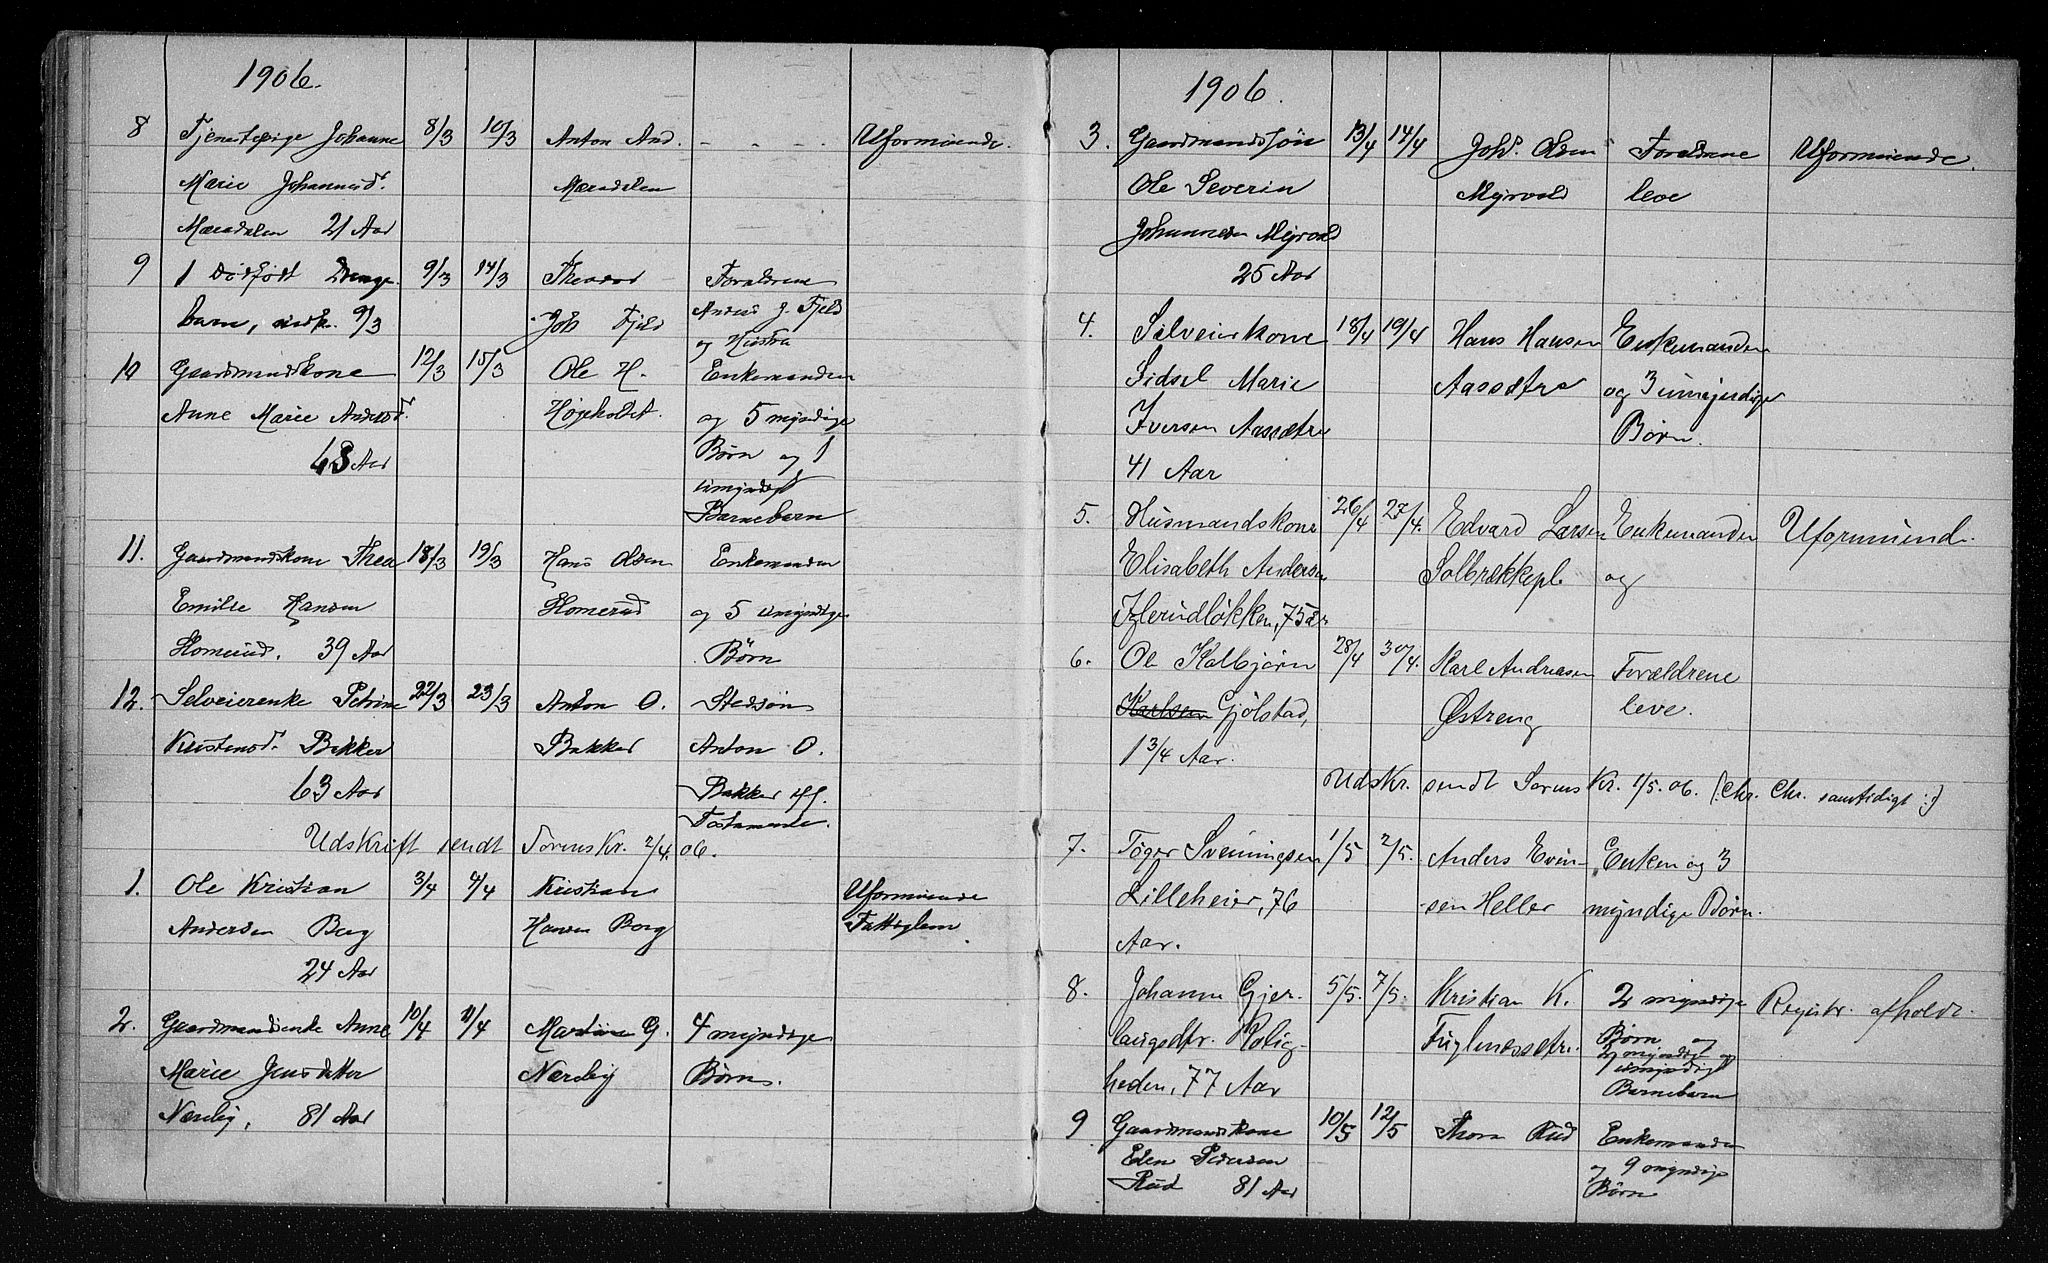 1906.
8 Tjenestepige Johanne 8/3 10/3 Anton And. - . . . Uformuende.
Marie Johannesd. Mæradalen
Mæradalen 21 Aar
9 1 dødfødt Drenge- 9/3 14/3 Theodor Forældrene
barn, indk. 9/3 Joh Fjeld Anders J. Fjeld
og Hustru
10 Gaardmandskone 12/3 15/3 Ole H. Enkemanden
Anne Marie Andersd. Høgeholdt. og 5 myndige
68 Aar Børn og 1
umyndigt
Barnebarn
11. Gaardmandskone Thea 18/3 19/3 Hans Olsen Enkemanden
Emilie Hansen Homerud og 5 umyndige
Homerud. 39 Aar Børn
12. Selveierenke Petrine 22/3 23/3 Anton O. Stedsøn
Kristensd. Bakker Bakker Anton O.
63 Aar Bakker iflg.
Testamente.
Udskrift sendt Sorenskr. 2/4. 06.
1. Ole Kristian 3/4 4/4 Kristian Uformuende
Andersen Berg Hansen Borg Fattiglem.
24 Aar
2. Gaardmandsenke Anne 10/4 11/4 Martine G. 4 myndige
Marie Jensdatter Næreby Børn.
Næreby, 81 Aar
1906.
3. Gaardmandssøn 13/4 14/4 Johs. Olsen Forældrene Uformuende.
Ole Severin Myrvold leve
Johannesen Myrvold
25 Aar
4. Selveierkone 18/4 19/4 Hans Hansen Enkemanden
Sidsel Marie Aassætre og 3 umyndige
Iversen Aassætre Børn.
41 Aar
5. Husmandskone 26/4 27/4. Edvard Larsen Enkemanden Uformuend.
Elisabeth Andersen Solbrækkepl. og
Iglerudløkken, 75 år
6. Ole Kolbjørn 28/4 30/4. Karl Andreasen Forældrene
Karlsen Gjølstad, Østreng leve.
1 3/4 Aar.
Udskr. sendt Sorenskr. 1/5. 06. (: Chr. Chr. samtidigt :)
7. Tøger Svenningsen 1/5 2/5. Anders Even- Enken og 3
Lilleheier, 76 sen Heller myndige Børn.
Aar.
8. Johanne Gjer- 5/5. 7/5. Kristian K. 2 myndige Registr. afholdt.
laugsdtr. Rolig- Fuglenessætre. Børn og
heden, 77 Aar 2 myndigt og
1 umyndigt
Barnebarn
9 Gaardmandskone 10/5 12/5 Thora Rud Enkemanden
Eden Pedersen og 9 myndige
Rud 81 Aar Børn